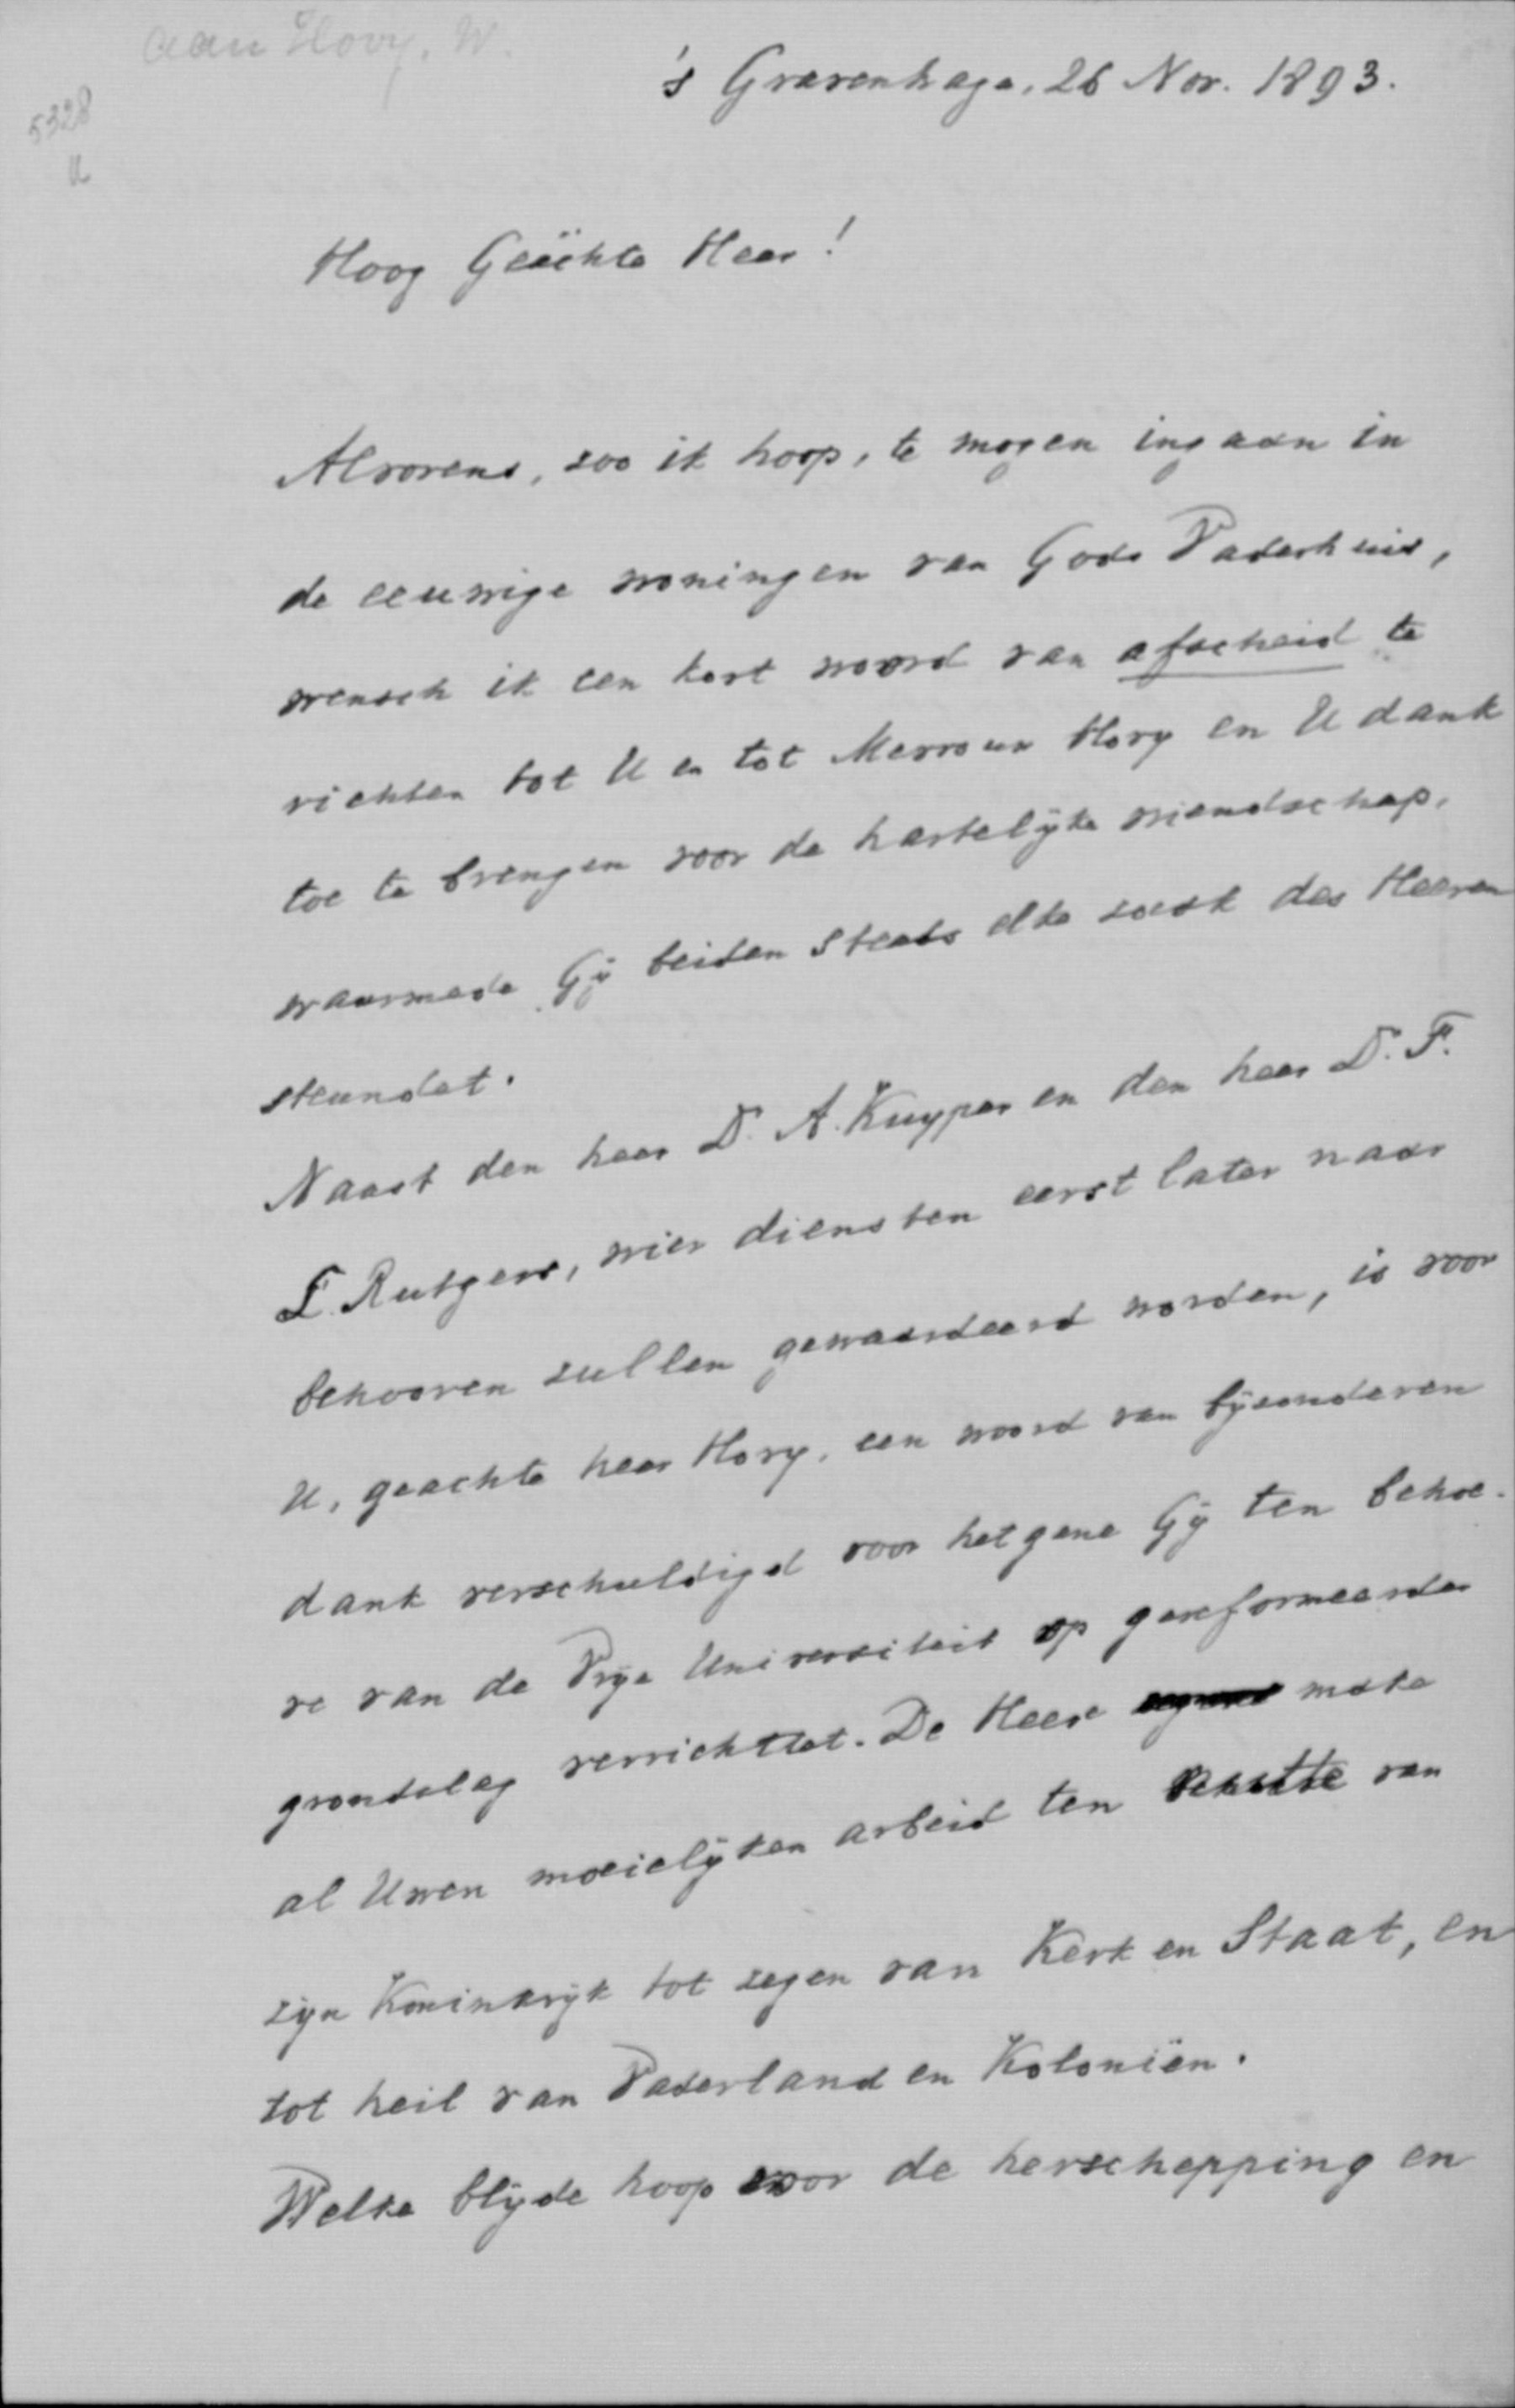 aan Hovy. W.
5328
U
's Gravenhage, 26 Nov. 1893.
Hoog Geächte Heer!
Alvorens, zoo ik hoop, te mogen ingaan in
de eeuwige woningen van Gods Vaderhuis,
wensch ik een kort woord van afscheid te
richten tot U en tot Mevrouw Hovy en U dank
toe te brengen voor de hartelijke vriendschap,
waarmede Gij beiden steeds elke zaak des Heeren
steundet.
Naast den heer Dr. A. Kuyper en den heer Dr. F.
L. Rutgers, wier diensten eerst later naar
behooren zullen gewaardeerd worden, is voor
U, geachte heer Hovy, een woord van bijzonderen
dank verschuldigd voor hetgene Gij ten behoe-
ve van de Vrije Universiteit op gereformeerden
grondslag verrichttet. De Heere make
al Uwen moeielijken arbeid ten van
zijn Koninkrijk tot zegen van Kerk en Staat, en
tot heil van Vaderland en Koloniën.
Welke blijde hoop voor de herschepping en